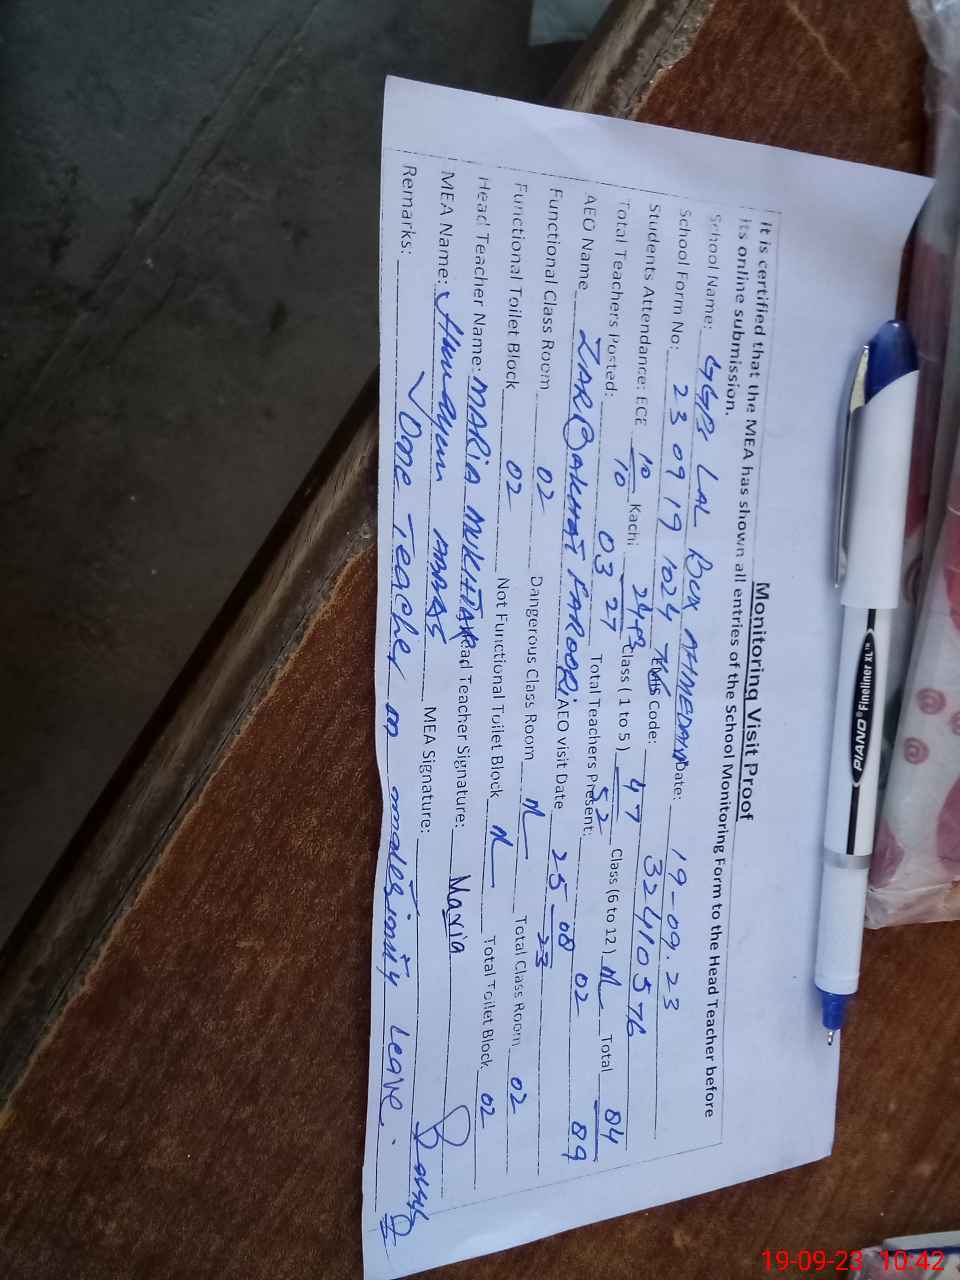 Monitoring Visit Proof
It is certified that the MEA has shown all entries of the School Monitoring Form to the Head Teacher before
its online submission.
School Name: GGPS LAL BUX AHMEDANI Date: 19-09.23
School Form No: 23 09 19 1024 EMIS Code: 32410576
Students Attendance: ECE 10/10 Kachi 27 Class ( 1 to 5 ) 47/52 Class (6 to 12 ) N Total 84/89
Total Teachers Posted: 03 Total Teachers Present: 02
AEO Name ZIAR FAROOQI AEO visit Date 25-08-23
Functional Class Room 02 Dangerous Class Room N Total Class Room 02
Functional Toilet Block 02 Not Functional Toilet Block N Total Toilet Block 02
Head Teacher Name: MARIA MUKHTAR Head Teacher Signature: Maria
MEA Name: Humayun ABBAS MEA Signature:
Remarks: One Teacher on leave.
PIANO Fineliner XL
19-09-23 10:42